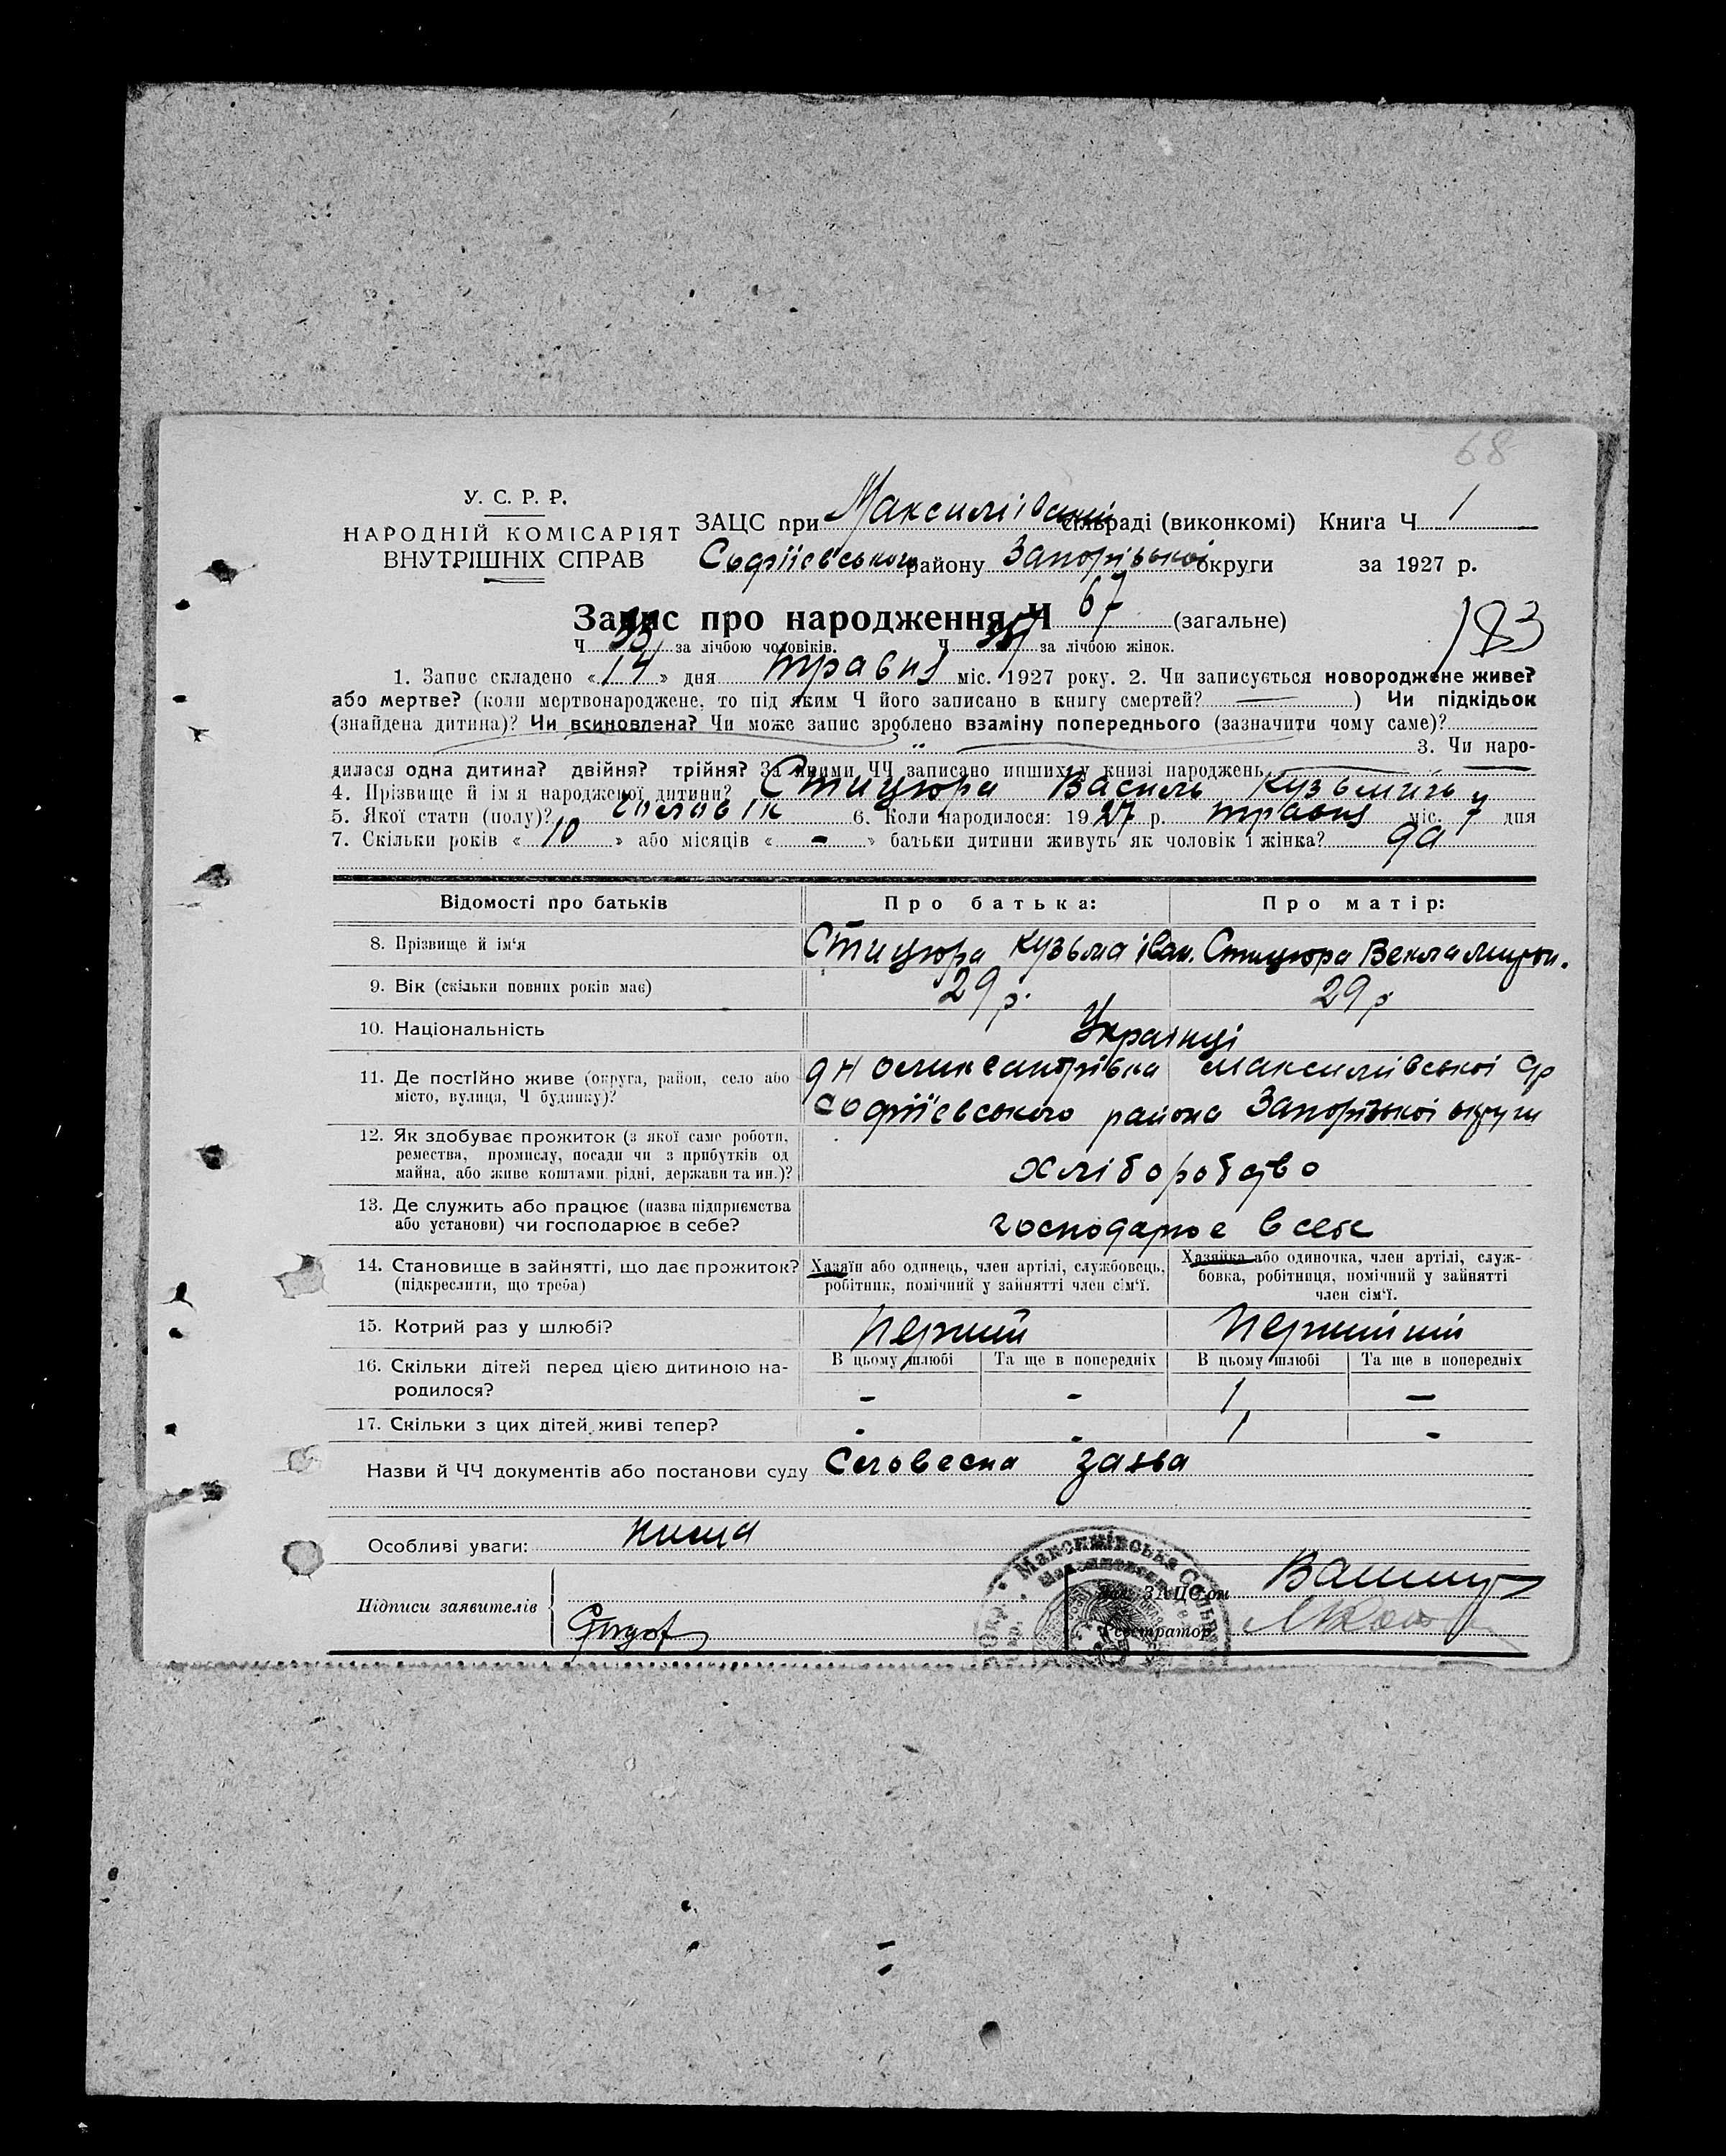 68
У. С. Р. Р.
НАРОДНІЙ КОМІСАРІЯТ
ВНУТРІШНІХ СПРАВ
ЗАЦС при сільраді (виконкомі) Книга Ч 1
Софіїевського району Запорізької округи за 1927 р.
Запис про народження Ч 67 (загальне)
183
Ч за лічбою чоловіків. Ч за лічбою жінок.
1. Запис складено « 14 » дня травня міс. 1927 року. 2. Чи записується новороджене живе?
або мертве? (коли мертвонароджене, то під яким Ч його записано в книгу смертей? ) Чи підкідьок
(знайдена дитина)? Чи всиновлена? Чи може запис зроблено взаміну попереднього (зазначити чому саме)?
3. Чи наро-
дилася одна дитина? двійня? трійня? За якими ЧЧ записано инших у книзі народжень
4. Прізвище й ім'я народженої дитини? Стицюра Василь Кузьмичь
5. Якої стати (полу)? чоловік 6. Коли народилося: 1927 р. травня міс. 7 дня
7. Скільки років « 10 » або місяців « - » батьки дитини живуть як чоловік і жінка? да
Відомості про батьків Про батька: Про матір:
8. Прізвище й ім'я Стицюра Кузьма Іван. Стицюра Векла
9. Вік (скільки повних років має) 29 р. 29 р
10. Національність Українці
11. Де постійно живе (округа, район, село або місто, вулиця, Ч будинку)?
Максимівської
Софіїевського района Запорізької округи
12. Як здобуває прожиток (з якої саме роботи,
ремества, промислу, посади чи з прибутків од
майна, або живе коштами рідні, держави та ин.)?
хліборобство
13. Де служить або працює (назва підприємства
або установи) чи господарює в себе?
господарює в себе
14. Становище в зайнятті, що дає прожиток?
(підкреслити, що треба)
Хазяїн або одинець, член артілі, службовець,
робітник, помічний у зайнятті член сім'ї.
Хазяйка або одиночка, член артілі, служ-
бовка, робітниця, помічний у зайнятті
член сім'ї.
15. Котрий раз у шлюбі? перший
16. Скільки дітей перед цією дитиною на-
родилося?
В цьому шлюбі Та ще в попередніх В цьому шлюбі Та ще в попередніх
- - 1 -
17. Скільки з цих дітей живі тепер? - - 1 -
Назви й ЧЧ документів або постанови суду Словесна заява
Особливі уваги: нима
Підписи заявителів
Зав. ЗАЦС'ом
Реєстратор